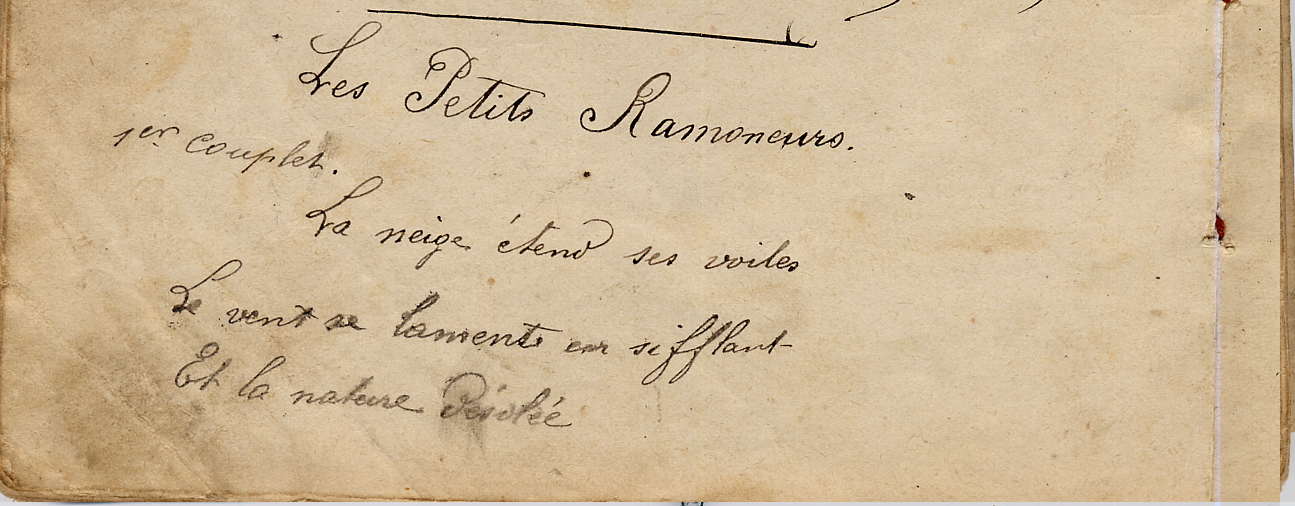 Les Petits Ramoneurs.
1er couplet.
La neige étend ses voiles
Le vent se lamente en sifflant
Et la nature désolée